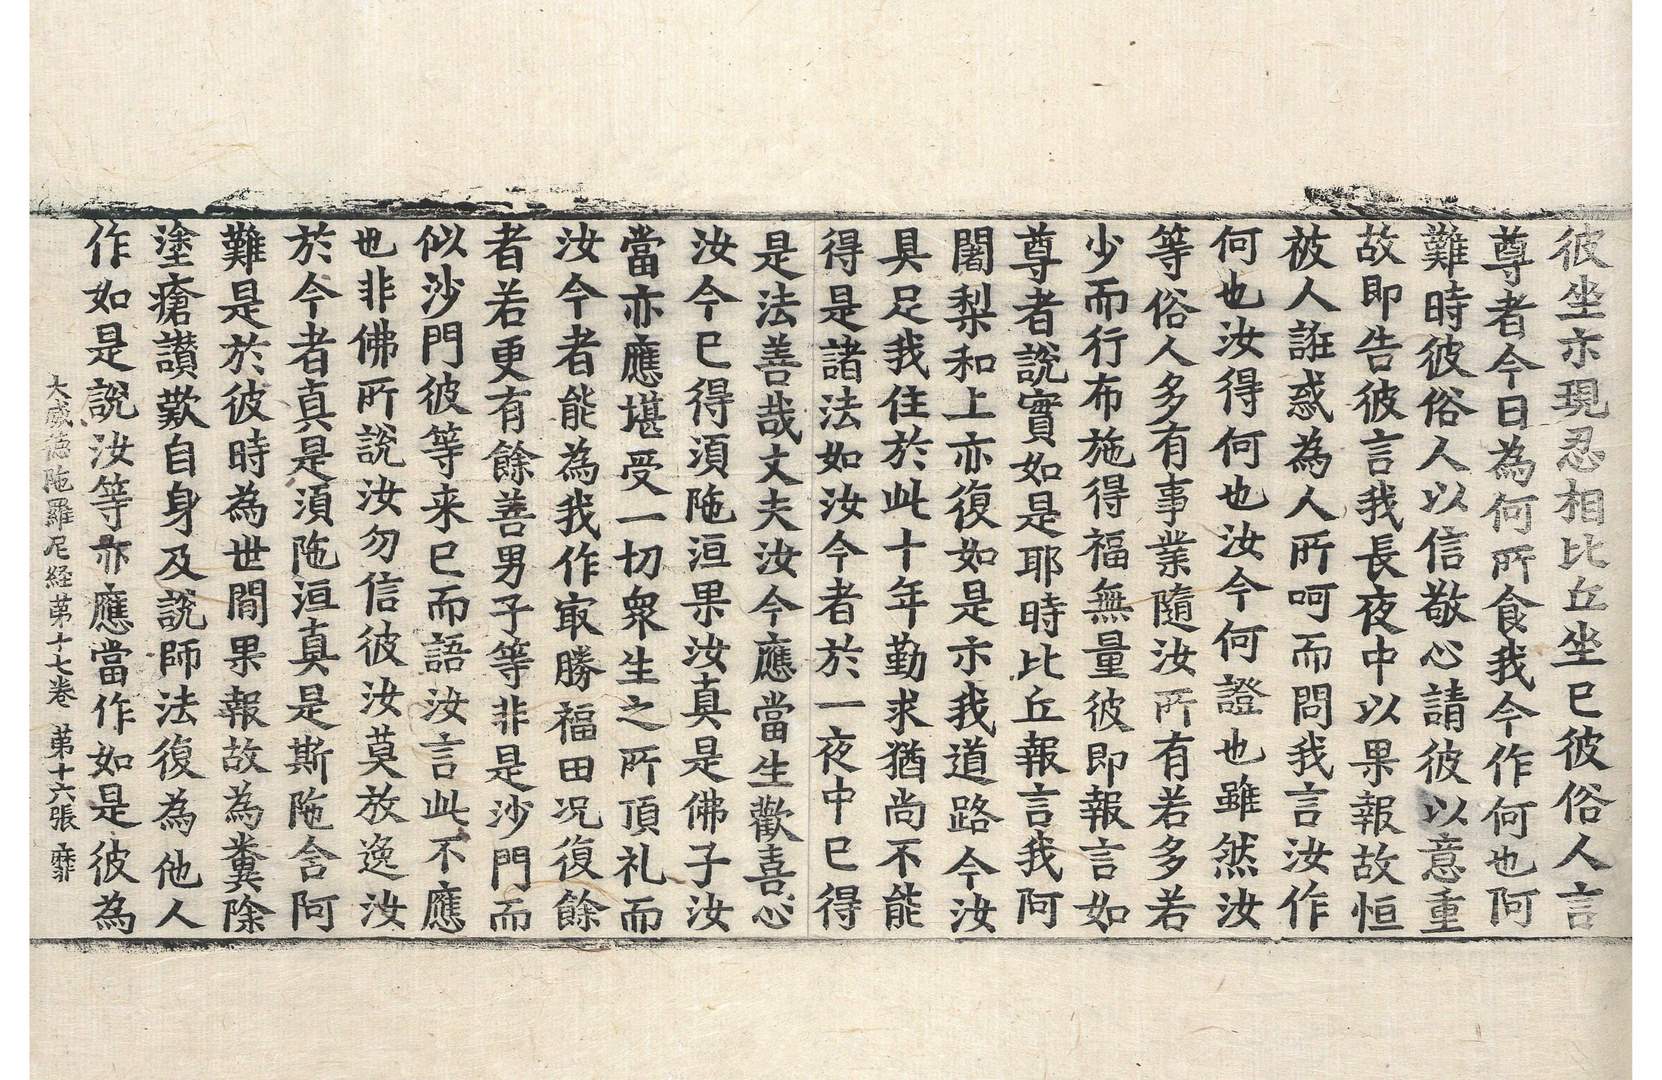 彼坐亦現忍相比丘坐已彼俗人言
尊者今日為何所食我今作何也阿
難時彼俗人以信敬心請彼以意重
故即告彼言我長夜中以果報故恒
被人誑惑為人所呵而問我言汝作
何也汝得何也汝今何證也雖然汝
等俗人多有事業隨汝所有若多若
少而行布施得福無量彼即報言如
尊者說實如是耶時比丘報言我阿
闍梨和上亦復如是亦我道路今汝
具足我住於此十年勤求猶尚不能
得是諸法如汝今者於一夜中已得
是法善哉丈夫汝今應當生歡喜心
汝今已得須陁洹果汝真是佛子汝
當亦應堪受一切衆生之所頂礼而
汝今者能為我作㝡勝福田况復餘
者若更有餘善男子等非是沙門而
似沙門彼等来已而語汝言此不應
也非佛所說汝勿信彼汝莫放逸汝
於今者真是須陁洹真是斯陁含阿
難是於彼時為世間果報故為糞除
塗瘡讃歎自身及說師法復為他人
作如是說汝等亦應當作如是彼為
大威徳陁羅尼経苐十七卷 苐十六張 靡